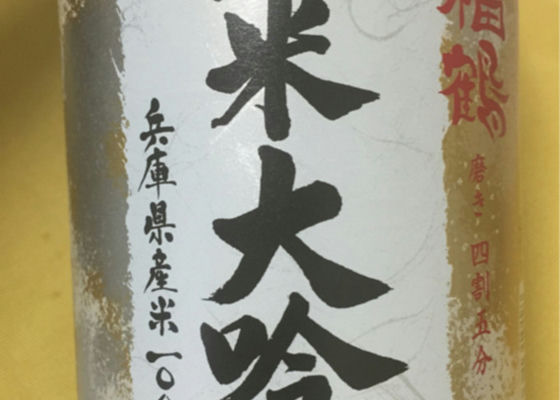 福鶴
磨き 四割五分
米大吟
兵庫県産米一〇